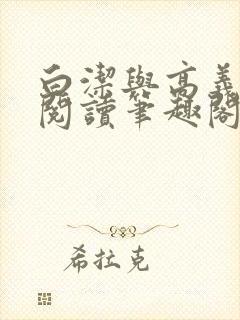 白潔與高義
閱讀筆趣閣
希拉克